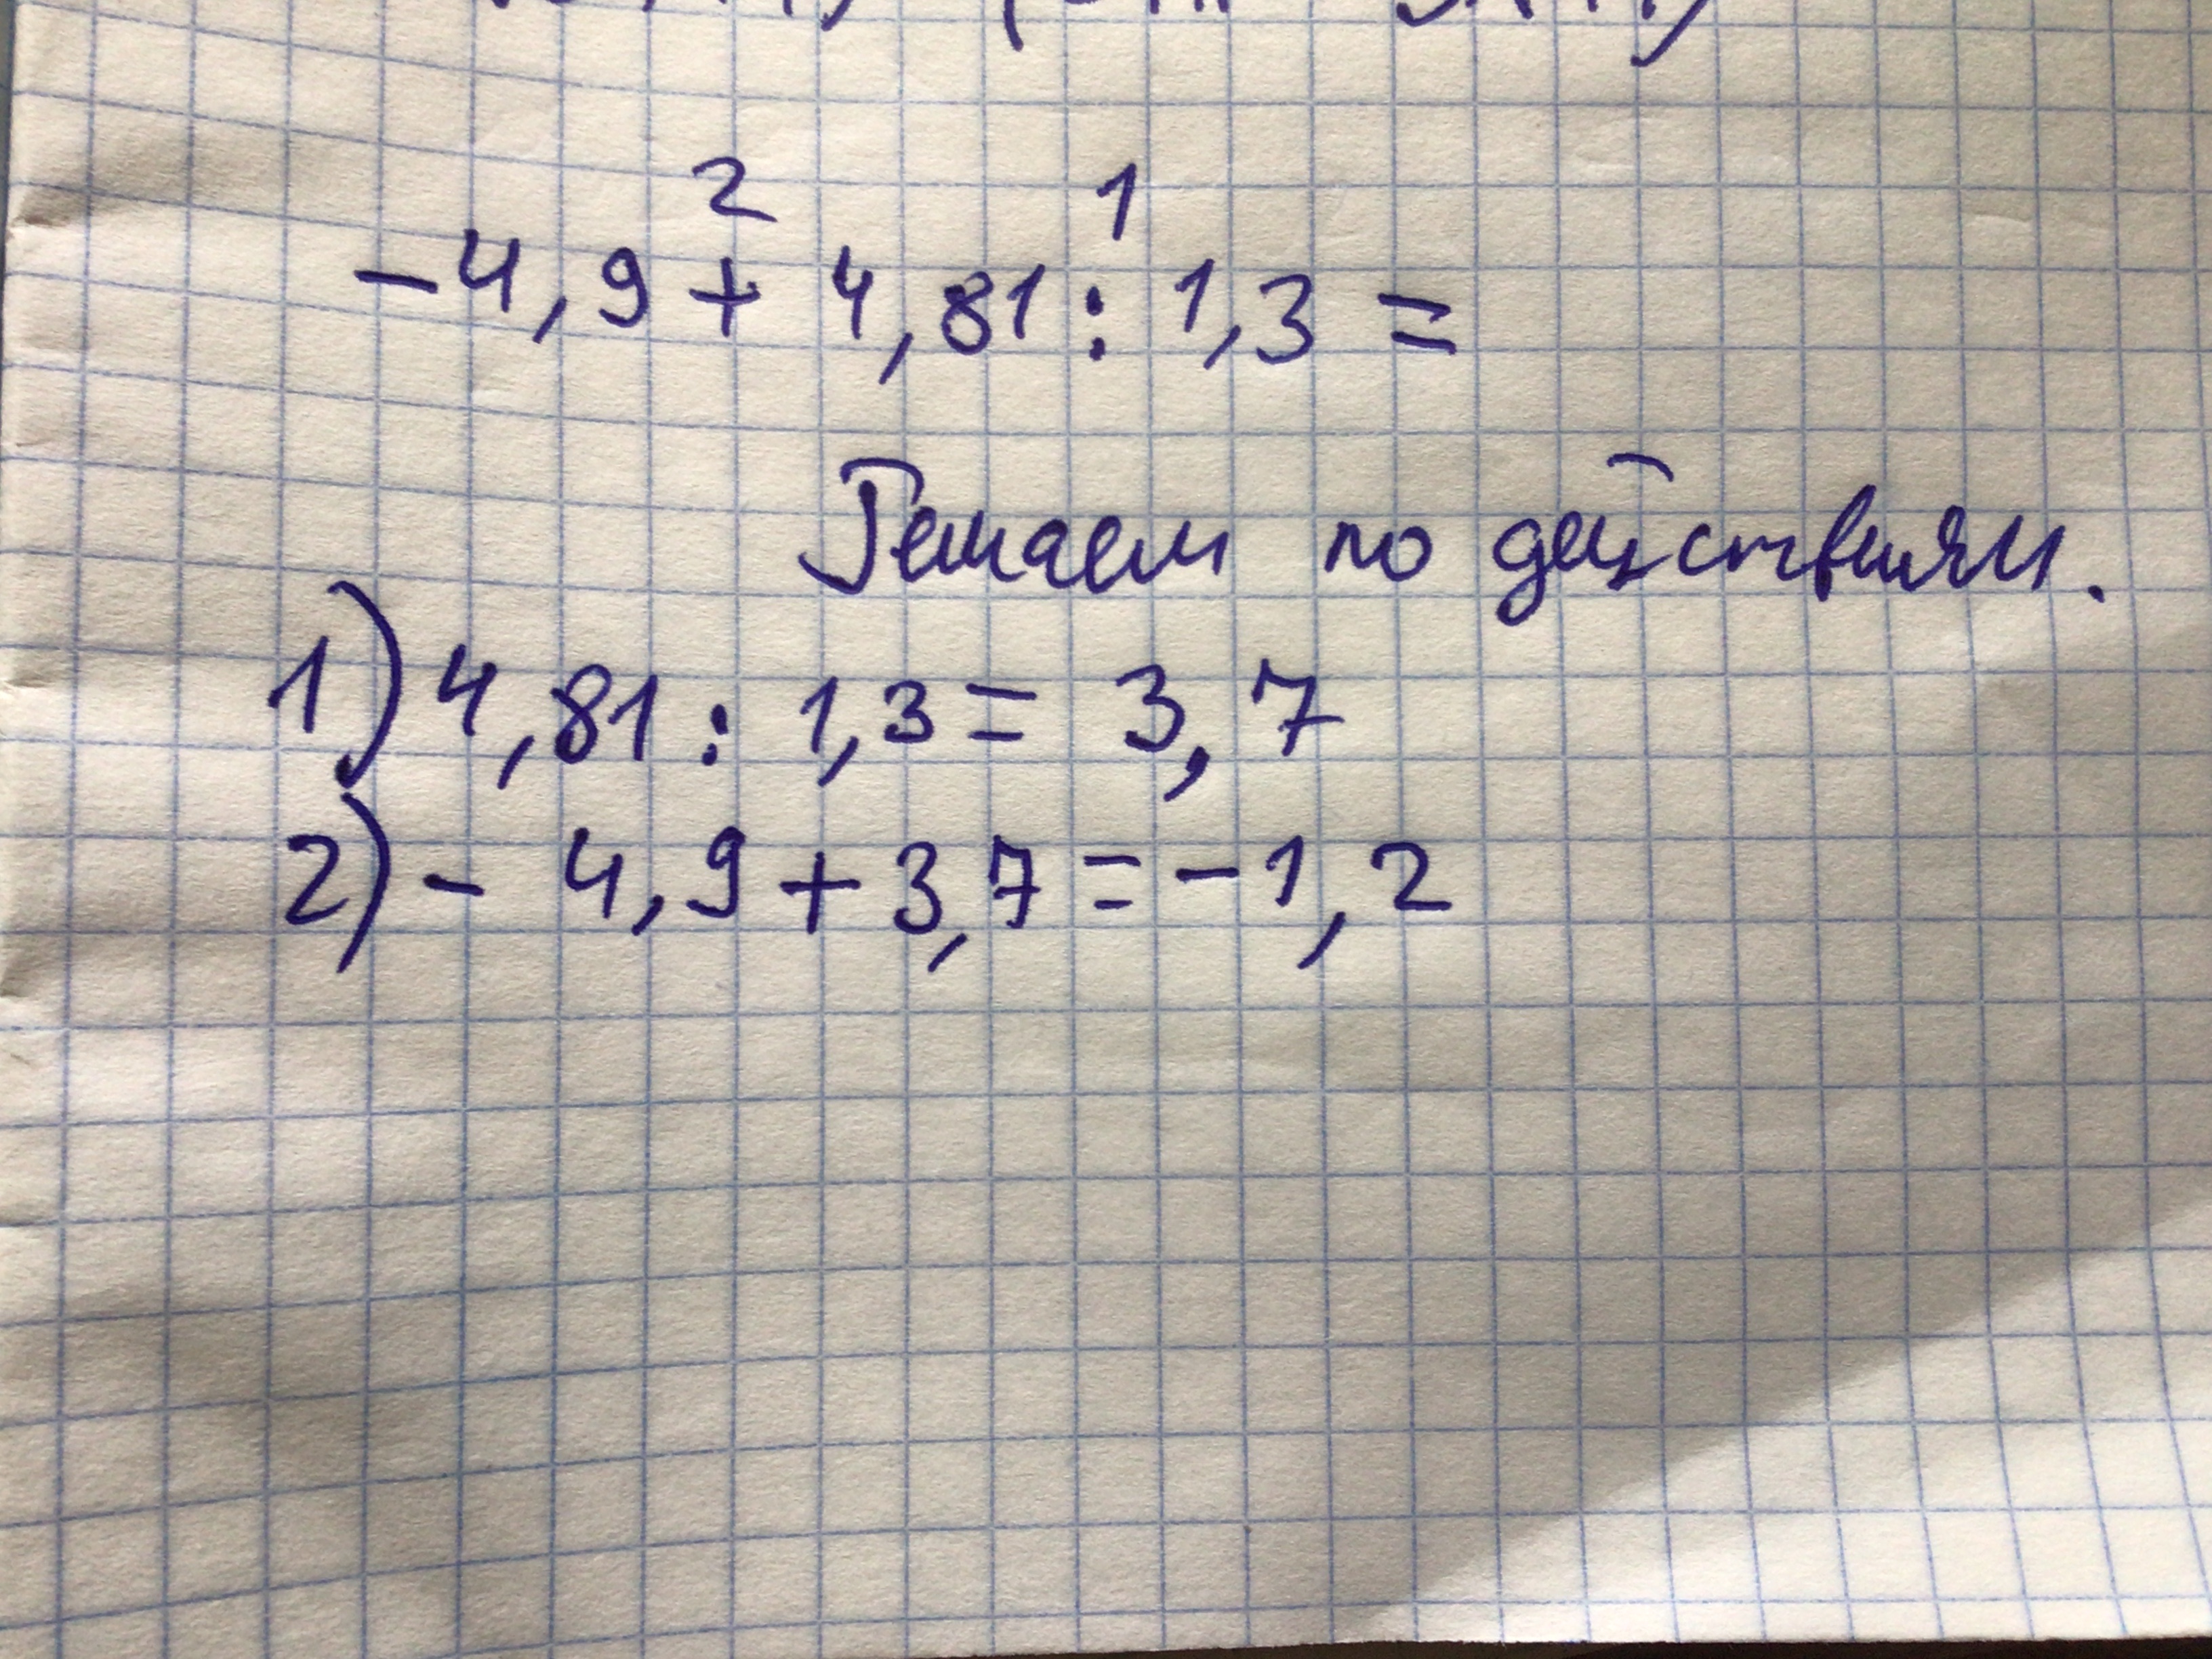 2 1
-4,9 + 4,81 : 1,3 =
Решаем по действиям.
1) 4,81 : 1,3 = 3,7
2) - 4,9 + 3,7 = -1,2